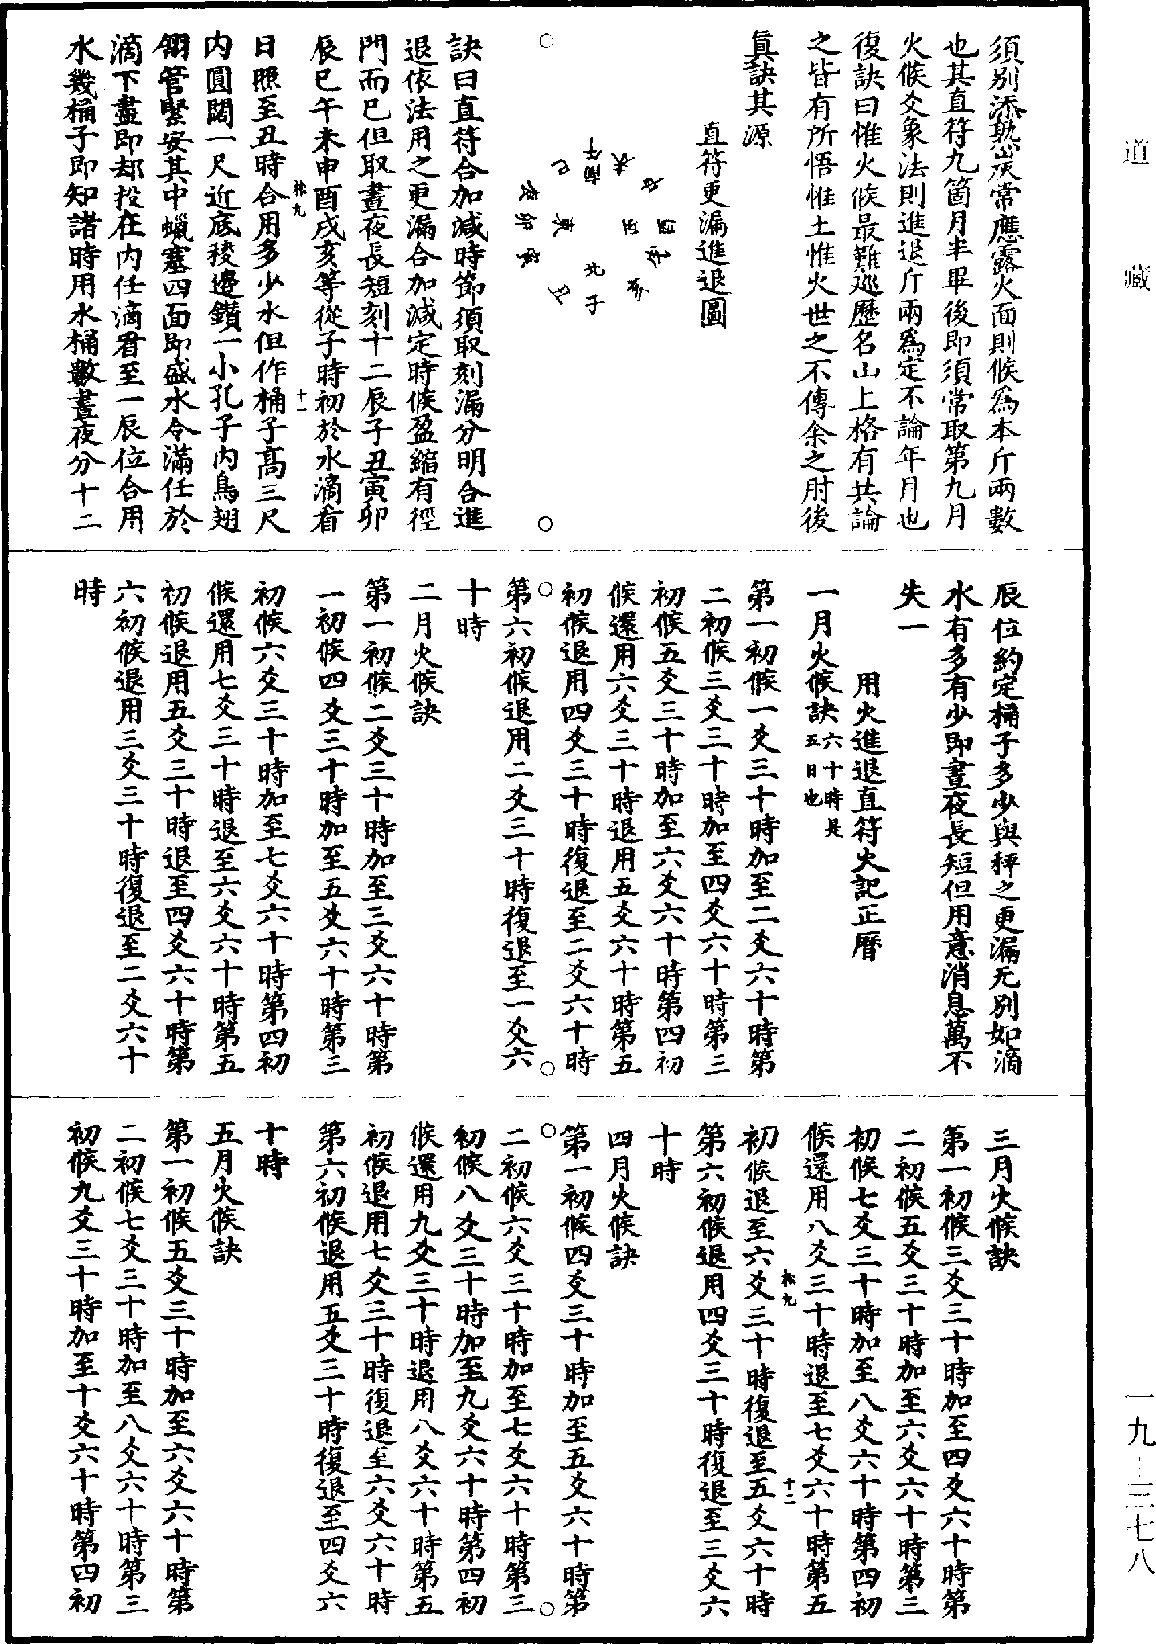 道藏
須別添熟炭常應露火面則候為本斤兩數
也其直符九箇月半畢後即須常取第九月
火候爻象法則進退斤兩為定不論年月也
復訣曰惟火候最難巡歷名山上格有共論
之皆有所悟惟土惟火世之不傳余之肘後
真訣其源
直符更漏進退圖
訣曰直符合加減時節須取刻漏分明合進
退依法用之更漏合加減定時候盈縮有徑
門而已但取晝夜長短刻十二辰子丑寅卯
辰巳午未申酉戌亥等從子時初於水滴看
松九
十一
日照至丑時合用多少水但作桶子高三尺
内圓闊一尺近底稜邊鑽一小孔子内鳥翅
翎管緊安其中蠟塞四面即盛水令滿任於
滴下盡即却投在内任滴看至一辰位合用
水幾桶子即知諸時用水桶數晝夜分十二
辰位約定桶子多少與秤之更漏无別如滴
水有多有少即晝夜長短但用意消息萬不
失一
用火進退直符火記正曆
一月火候訣六十時是五日也
第一初候一爻三十時加至二爻六十時第
二初候三爻三十時加至四爻六十時第三
初候五爻三十時加至六爻六十時第四初
候還用六爻三十時退用五爻六十時第五
初候退用四爻三十時復退至二爻六十時
第六初候退用二爻三十時復退至一爻六
十時
二月火候訣
第一初候二爻三十時加至三爻六十時第
一初候四爻三十時加至五爻六十時第三
初候六爻三十時加至七爻六十時第四初
候還用七爻三十時退至六爻六十時第五
初候退用五爻三十時退至四爻六十時第
六初候退用三爻三十時復退至二爻六十
時
三月火候訣
第一初候三爻三十時加至四爻六十時第
二初候五爻三十時加至六爻六十時第三
初候七爻三十時加至八爻六十時第四初
候還用八爻三十時退至七爻六十時第五
松九
十二
初候退至六爻三十時復退至五爻六十時
第六初候退用四爻三十時復退至三爻六
十時
四月火候訣
第一初候四爻三十時加至五爻六十時第
二初候六爻三十時加至七爻六十時第三
初候八爻三十時加至九爻六十時第四初
候還用九爻三十時退用八爻六十時第五
初候退用七爻三十時復退至六爻六十時
第六初候退用五爻三十時復退至四爻六
十時
五月火候訣
第一初候五爻三十時加至六爻六十時第
二初候七爻三十時加至八爻六十時第三
初候九爻三十時加至十爻六十時第四初
一九-三七八